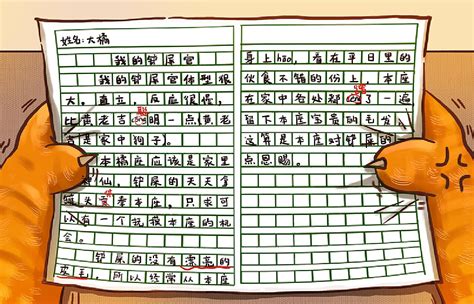 姓名:大橘
我的铲屎官
我的铲屎官体型很
大,直立,反应很慢,
比黄老吉cōng明一点(黄老
是家中狗子)。
本橘座应该是家里
神仙,铲屎的天天拿
头 着本座,只求可
以有一个抚摸本座的机
会。
铲屎的没有漂亮的
皮毛,所以经常从本座
身上hāo,看在平日里的
伙食不错的份上,本座
在家中各处都 了一遍
留下本座宝贵的毛发
这算是本座对铲屎的一
点恩赐。